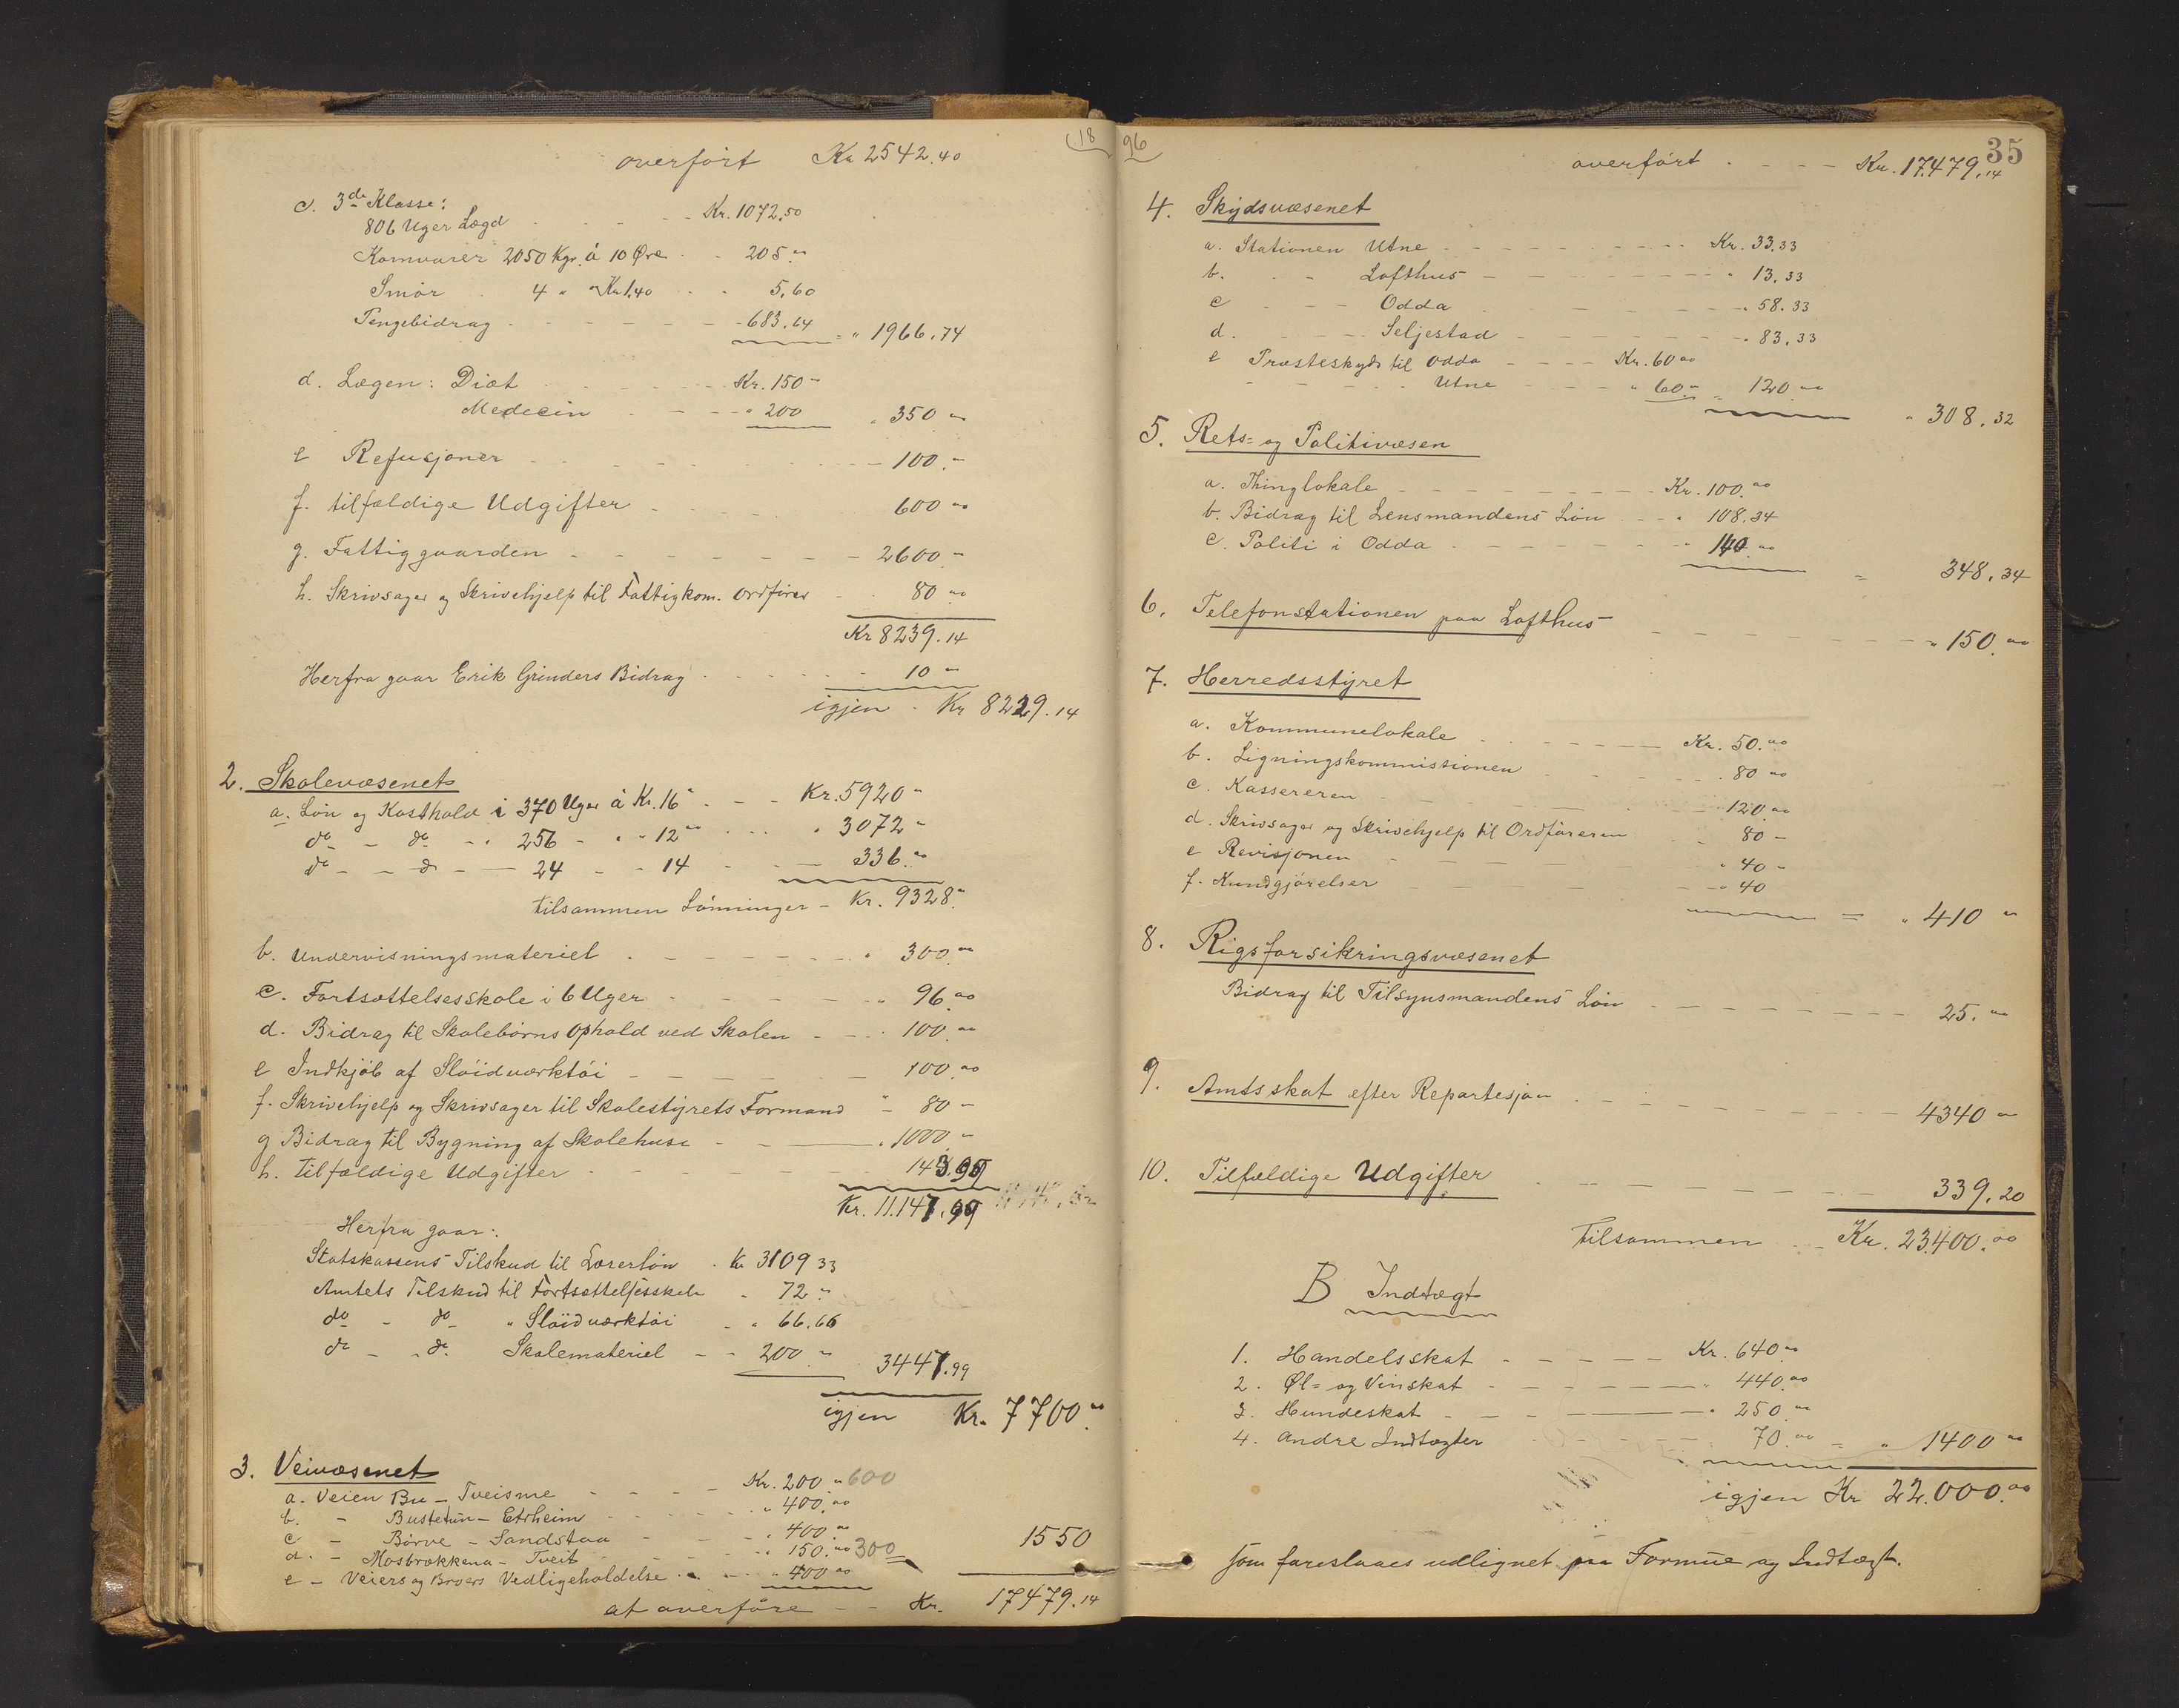 (18
overført Kr 2542.40
c. 3de Klasse:
806 Uger Lægd - - - Kr. 1072.50
Kornvarer 2050 Kgr. á 10 Øre - - 205."
Smør - 4 " " Kr 1.40 - - 5.60
Pengebidrag - - - - - 683.64 = " 1966.74
d. Lægen: Diæt - - - - Kr. 150 "
Medecin - - - " 200 " 350 "
e Refusjoner - - - - - 100. "
f. tilfældige Udgifter - - - 600 "
g. Fattiggaarden - - - - - 2600. "
h. Skrivsager og Skrivehjelp til Fattigkom. Ordfører - - 80 "
Kr 8239.14
Herfra gaar Erik Grinders Bidrag - - - - 10 "
igjen - Kr 8229.14
2. Skolevæsenet
a. Løn og Kosthold i 370 Uger á Kr. 16 " - - Kr. 5920 "
do - do - " 256 - " " 12 " - - " 3072 "
do - - do - - 24 - - 14 - - 336. "
tilsammen Lønninger - Kr. 9328. "
b. Undervisningsmateriel - - - - - " 300. "
c. Fortsættelsesskole i 6 Uger - - - - " 96. oo
d. Bidrag til Skolebørns Ophold ved Skolen - - " 100. "
e Indkjøb af Sløidværktøi - - - - 100. oo
f. Skrivehjelp og Skrivsager til Skolestyrets Formand " - 80 -
g Bidrag til Bygning af Skolehuse - - - " 1000. "
h. Tilfældige Udgifter - - - - - 143.99
Kr. 11.147.99
Herfra gaar:
Statskassens Tilskud til Lærerløn - Kr 3109 33
Amtets Tilskud til Fortsættelsesskole " 72. "
do - do " Sløidværktøi - " 66.66
do - " do. Skolemateriel - - 200 " 3447.99
igjen Kr. 7700. oo
3. Veivæsenet
a. Veien Bu - Tveisme - - - - Kr. 200 " 600
b. - Bustetun - Etrheim - - - - " 400. oo
c - Børve - Sandstaa - - - - " 400. "
d. - Mosbrækkena - Tveit - - - - " 150. oo 300
1550
e - Veiers og Broers Vedligeholdelse - - - " 400 oo
at overføre - - Kr. 17479.14
96
35
overført - - - - Kr. 17.479.14
4. Skydsvæsenet
a. Stationen Utne - - - - - - Kr. 33.33
b. - - Lofthus - - - - - - " 13.33
c - - - Odda - - - - - " 58.33
d. - - - Seljestad - - - - - " 83.33
e Præsteskyds til Odda - - - Kr. 60 oo
- - - - Utne - - - " 60. " = 120. oo
" 308.32
5. Rets= og Politivæsen
a. Thinglokale - - - - - - Kr. 100. oo
b. Bidrag til Lensmandens Løn - - " 108.34
c. Politi i Odda - - - - - " 140. oo
= 348.34
6. Telefonstationen paa Lofthus - - - - - - " 150. oo
7. Herredsstyret
a. Kommunelokale - - - - - Kr. 50. oo
b. Ligningskommissionen - - - - - " 80 oo
c. Kassereren - - - - - " 120. oo
d. Skrivsager og Skrivehjelp til Ordføreren - - 80 -
e Revisjonen - - - - - - " 40 -
f. Kundgjørelser - - - - - - " 40
= " 410 "
8. Rigsforsikringsvæsenet
Bidrag til Tilsynsmandens Løn - - - - - - 25. oo
9. Amtsskat efter Repartesjon - - - - - - 4340 "
10. Tilfældige Udgifter - - - - - - 339.20
Tilsammen - - Kr. 23.400. oo
B Indtægt
1. Handelsskat - - - - - Kr. 640. oo
2. Øl= og Vinskat - - - - - " 440. oo
3. Hundeskat - - - - - " 250. "
4. Andre Indtægter - - - - - 70. oo = " 1400 oo
igjen Kr 22.000. oo
som foreslaaes udlignet paa Formue og Indtægt.